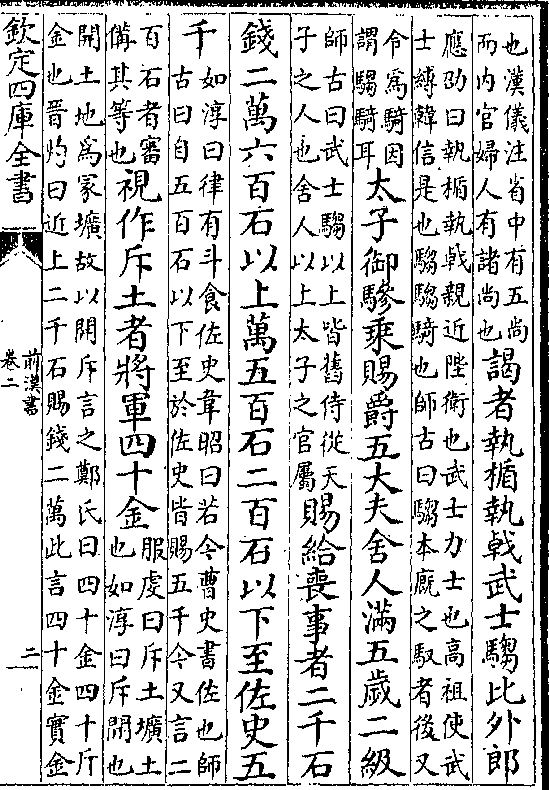 也漢儀注省中有五尚
而内官婦人有諸尚也
謁者執楯執戟武士騶比外郎
應劭曰執楯執戟親近陛衛也武士力士也高祖使武
士縛韓信是也騶騶騎也師古曰騶本廐之馭者後又
令為騎因
謂騶騎耳
太子御驂乘賜爵五大夫舍人滿五歲二級
師古曰武士騶以上皆舊侍從天
子之人也舍人以上太子之官屬
賜給喪事者二千石
錢二萬六百石以上萬五百石二百石以下至佐史五
千
如淳曰律有斗食佐史韋昭曰若今曹史書佐也師
古曰自五百石以下至於佐史皆賜五千今又言二
百石者審
備其等也
視作斥土者將軍四十金
服虔曰斥土壙土
也如淳曰斥開也
開土地為冢壙故以開斥言之鄭氏曰四十金四十斤
金也晋灼曰近上二千石賜錢二萬此言四十金實金
欽定四庫全書
前漢書
卷二
二